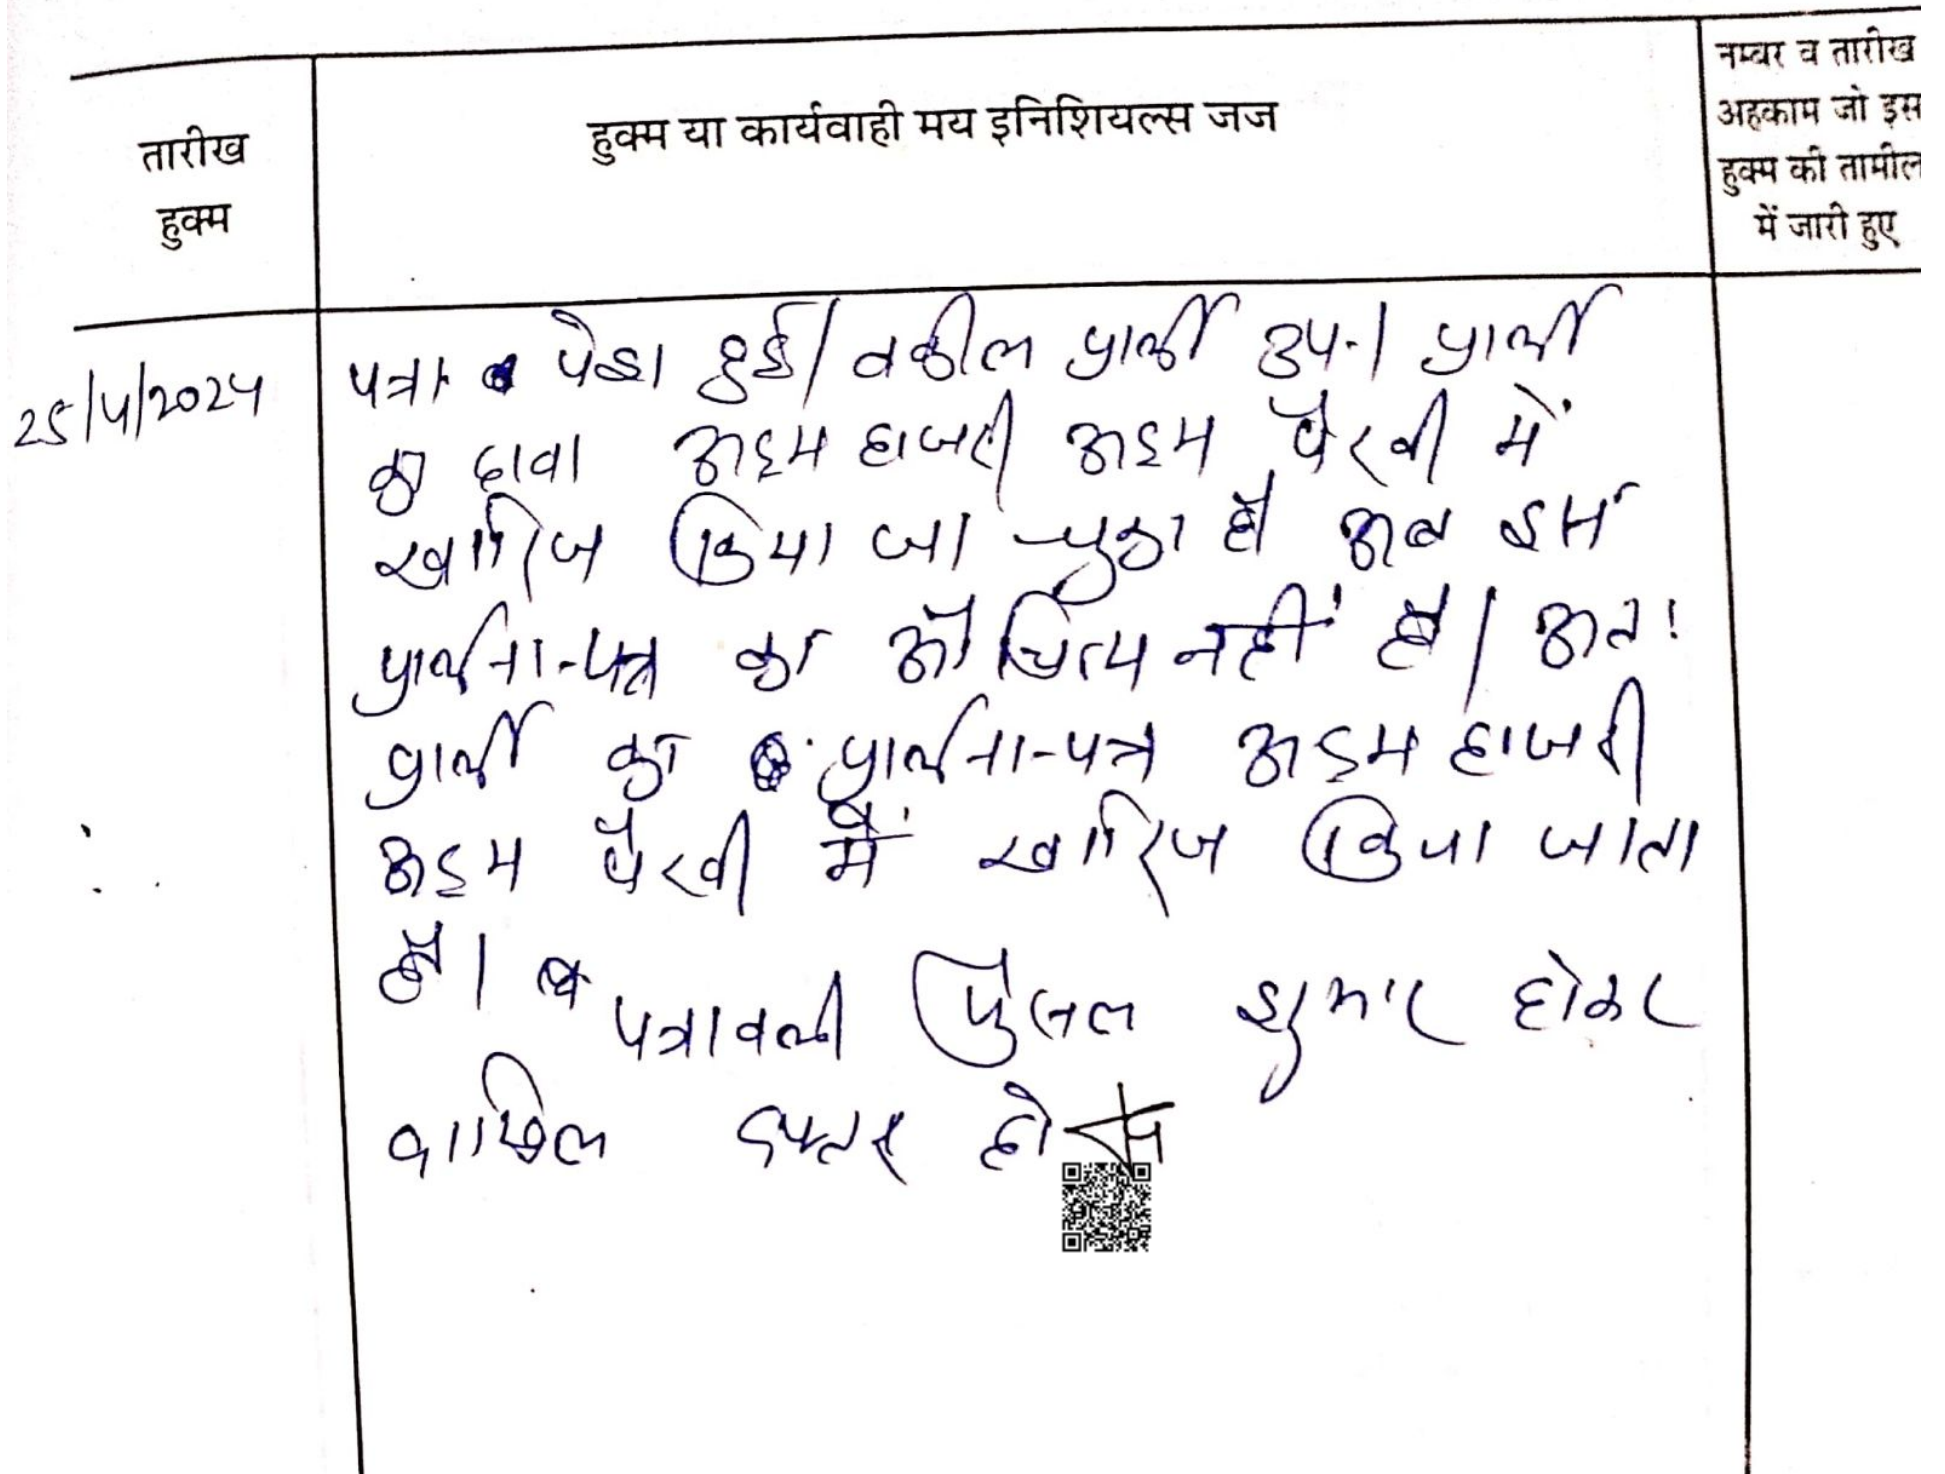 तारीख
हुक्म
हुक्म या कार्यवाही मय इनिशियल्स जज
नम्बर व तारीख
अहकाम जो इस
हुक्म की तामील
में जारी हुए
25/4/2024
पत्रा. पेश हुई। वकील प्रार्थी उप.। प्रार्थी
का दावा अदम हाजरी अदम पैरवी में
खारिज किया जा चुका है अब इस
प्रार्थना-पत्र का औचित्य नहीं है। अतः
प्रार्थी का प्रार्थना-पत्र अदम हाजरी
अदम पैरवी में खारिज किया जाता
है। पत्रावली फैसल शुमार होकर
दाखिल दफ्तर हो